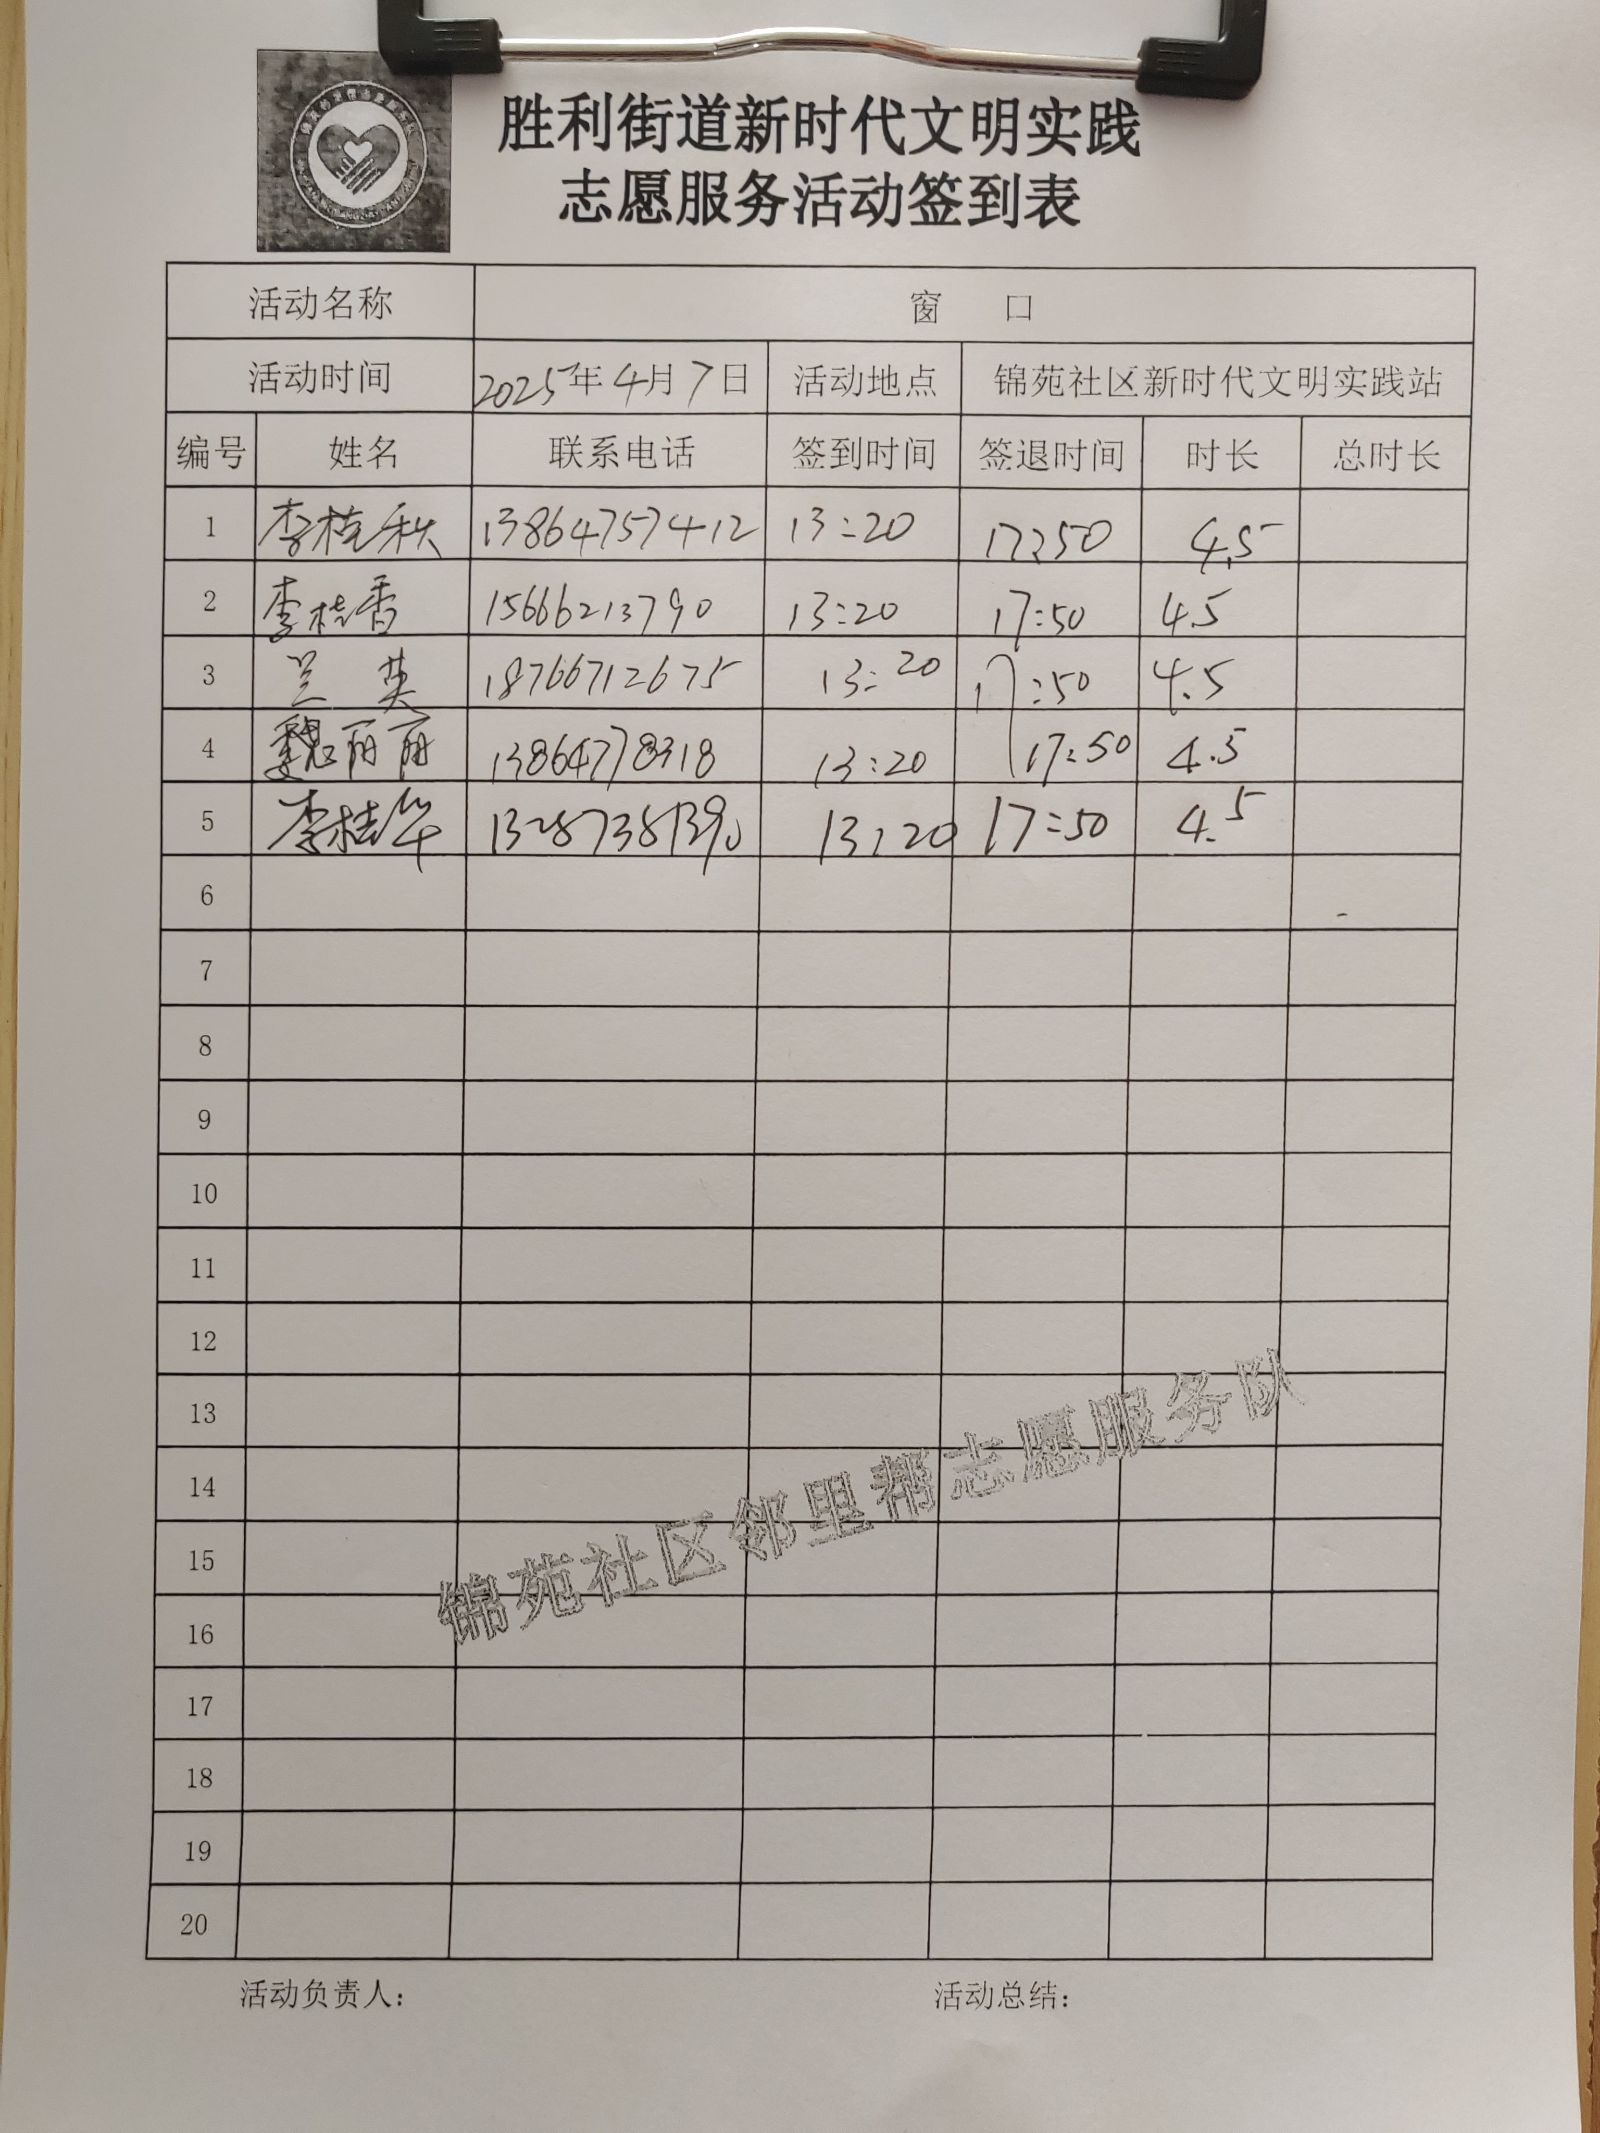 胜利街道新时代文明实践
志愿服务活动签到表
活动名称 窗 口
活动时间 2025年4月7日 活动地点 锦苑社区新时代文明实践站
编号 姓名 联系电话 签到时间 签退时间 时长 总时长
1 李桂秋 13864757412 13:20 17:50 4.5
2 李桂香 15666213790 13:20 17:50 4.5
3 兰英 18766712675 13:20 17:50 4.5
4 魏丽丽 13864778318 13:20 17:50 4.5
5 李桂华 13:20 17:50 4.5
6
7
8
9
10
11
12
13
14
15
16
17
18
19
20
锦苑社区邻里帮志愿服务队
活动负责人： 活动总结：